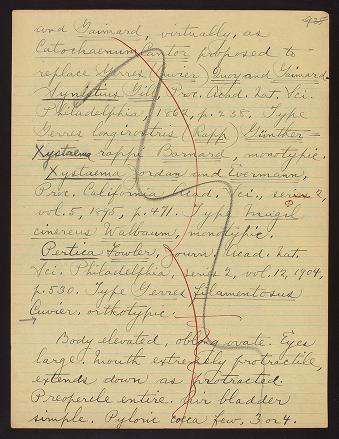 925
and Gaimard, virtually, as
Catochaenum Cantor proposed to
replace Gerres (Cuvier) Quoy and Gaimard
Synistius Gill, Proc. Acad. Nat. Sci.
Philadelphia, 1862, p. 238. Type
Gerres longirostris (Rapp) Günther =
Xystaema rappi Barnard, monotypic.
Xystaema Jordan and Evermann,
Proc. California Acad. Sci., series 2,
vol. 5, 1895, p. 471. Type Mugil
cinereus Walbaum, monotypic.
Pertica Fowler, Journ. Acad. Nat.
Sci. Philadelphia, series 2, vol. 12, 1904,
p. 530. Type Gerres filamentosus
Cuvier, orthotypic.
Body elevated, oblong ovate. Eyes
large. Mouth extremely protractile,
extends down as protracted.
Preopercle entire. Air bladder
simple. Pyloric coeca few, 3 or 4.